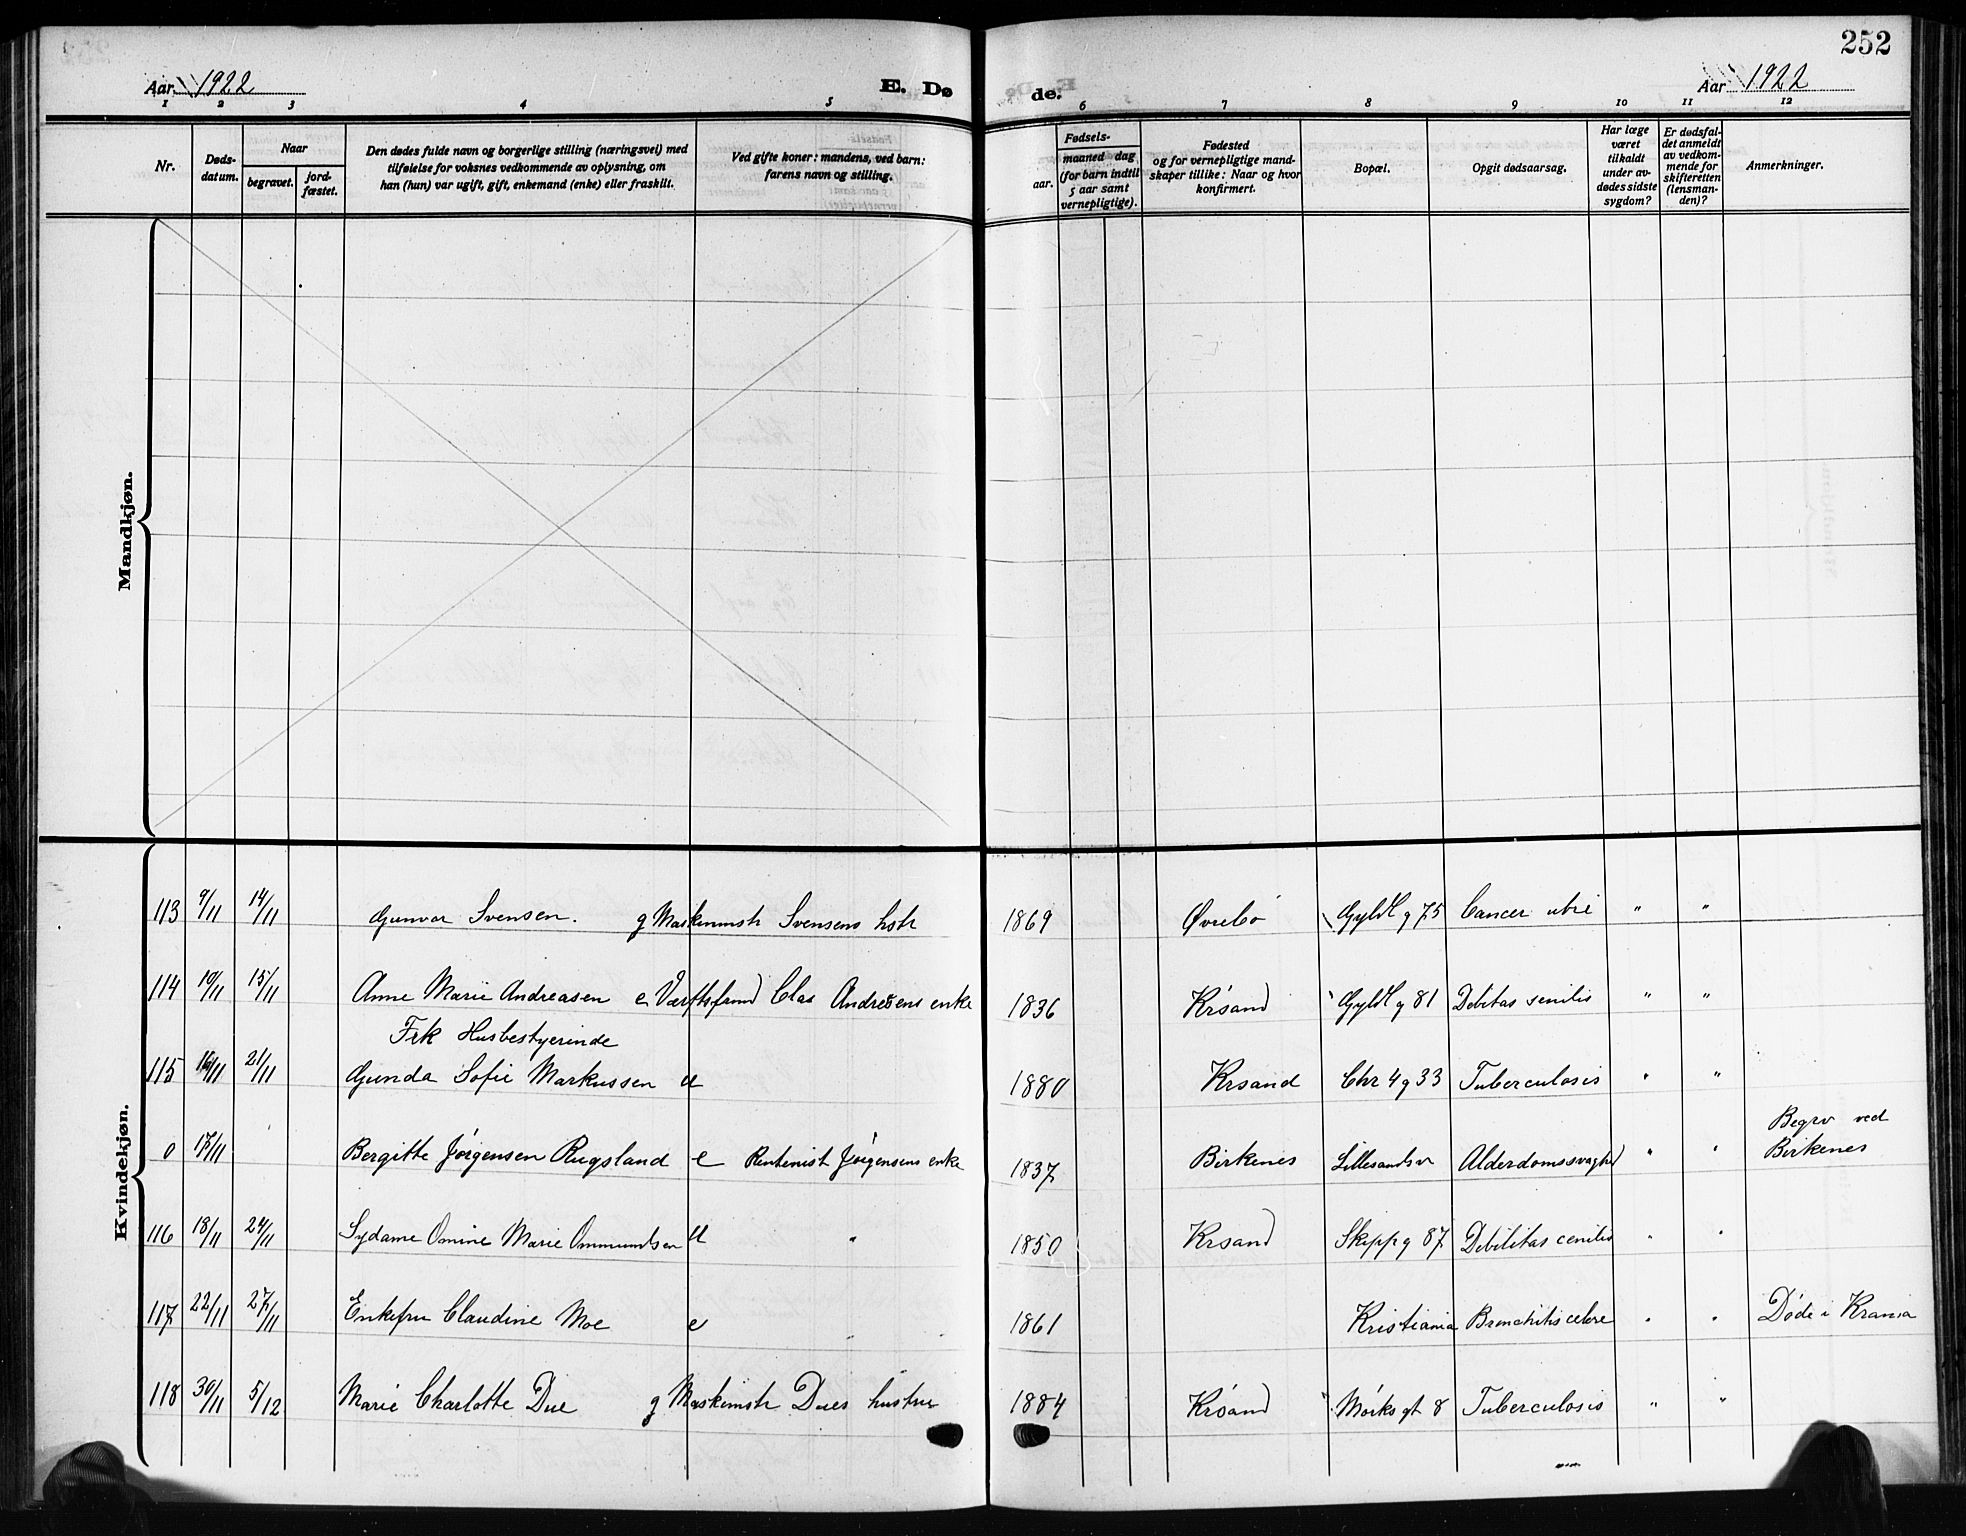 252
Aar 1922
E. Dø
de.
Aar 1922
1 2 3 4 5 6 7 8 9 10 11 12
Nr.
Døds-
datum.
Naar
begravet.
jord-
fæstet.
Den dødes fulde navn og borgerlige stilling (næringsvei) med
tilføielse for voksnes vedkommende av oplysning, om
han (hun) var ugift, gift, enkemand (enke) eller fraskilt.
Ved gifte koner: mandens, ved barn:
farens navn og stilling.
Fødsels-
aar.
maaned dag
(for barn indtil
5 aar samt
vernepligtige).
Fødested
og for vernepligtige mand-
skaper tillike: Naar og hvor
konfirmert.
Bopæl.
Opgit dødsaarsag.
Har læge
været
tilkaldt
under av-
dødes sidste
sygdom?
Er dødsfal-
det anmeldt
av vedkom-
mende for
skifteretten
(lensman-
den)?
Anmerkninger.
Mandkjøn.
Kvindekjøn.
113 9/11 14/11 Gunvor Svensen. g Maskinmstr Svensens hstr 1869 Øvrebø Gyldl g 75 Cancer " "
114 10/11 15/11 Anne Marie Andreasen e Værftsfmd Clas Andresens enke 1836 Krsand Gyldl g 81 Debitas senilis " "
Frk Husbestyerinde
115 16/11 21/11 Gunda Sofie Markussen u 1880 Krsand Chr 4 g 33 Tuberculosis " "
0 17/11 Bergitte Jørgensen Rugsland e Rentenist Jørgensens enke 1837 Birkenes Lillesandsv Alderdomssvaghed " " Begrv ved
Birkenes
116 18/11 24/11 Sydame Omine Marie Ommundsen u " 1850 Krsand Skippg 87 Debilitas cenilis " "
117 22/11 27/11 Enkefru Claudine Moe e " " 1861 Kristiania Bronchitis " " Døde i Krania
118 30/11 5/12 Marie Charlotte Due g Maskinmstr Dues hustru 1884 Krsand Mørks gt 8 Tuberculosis " "